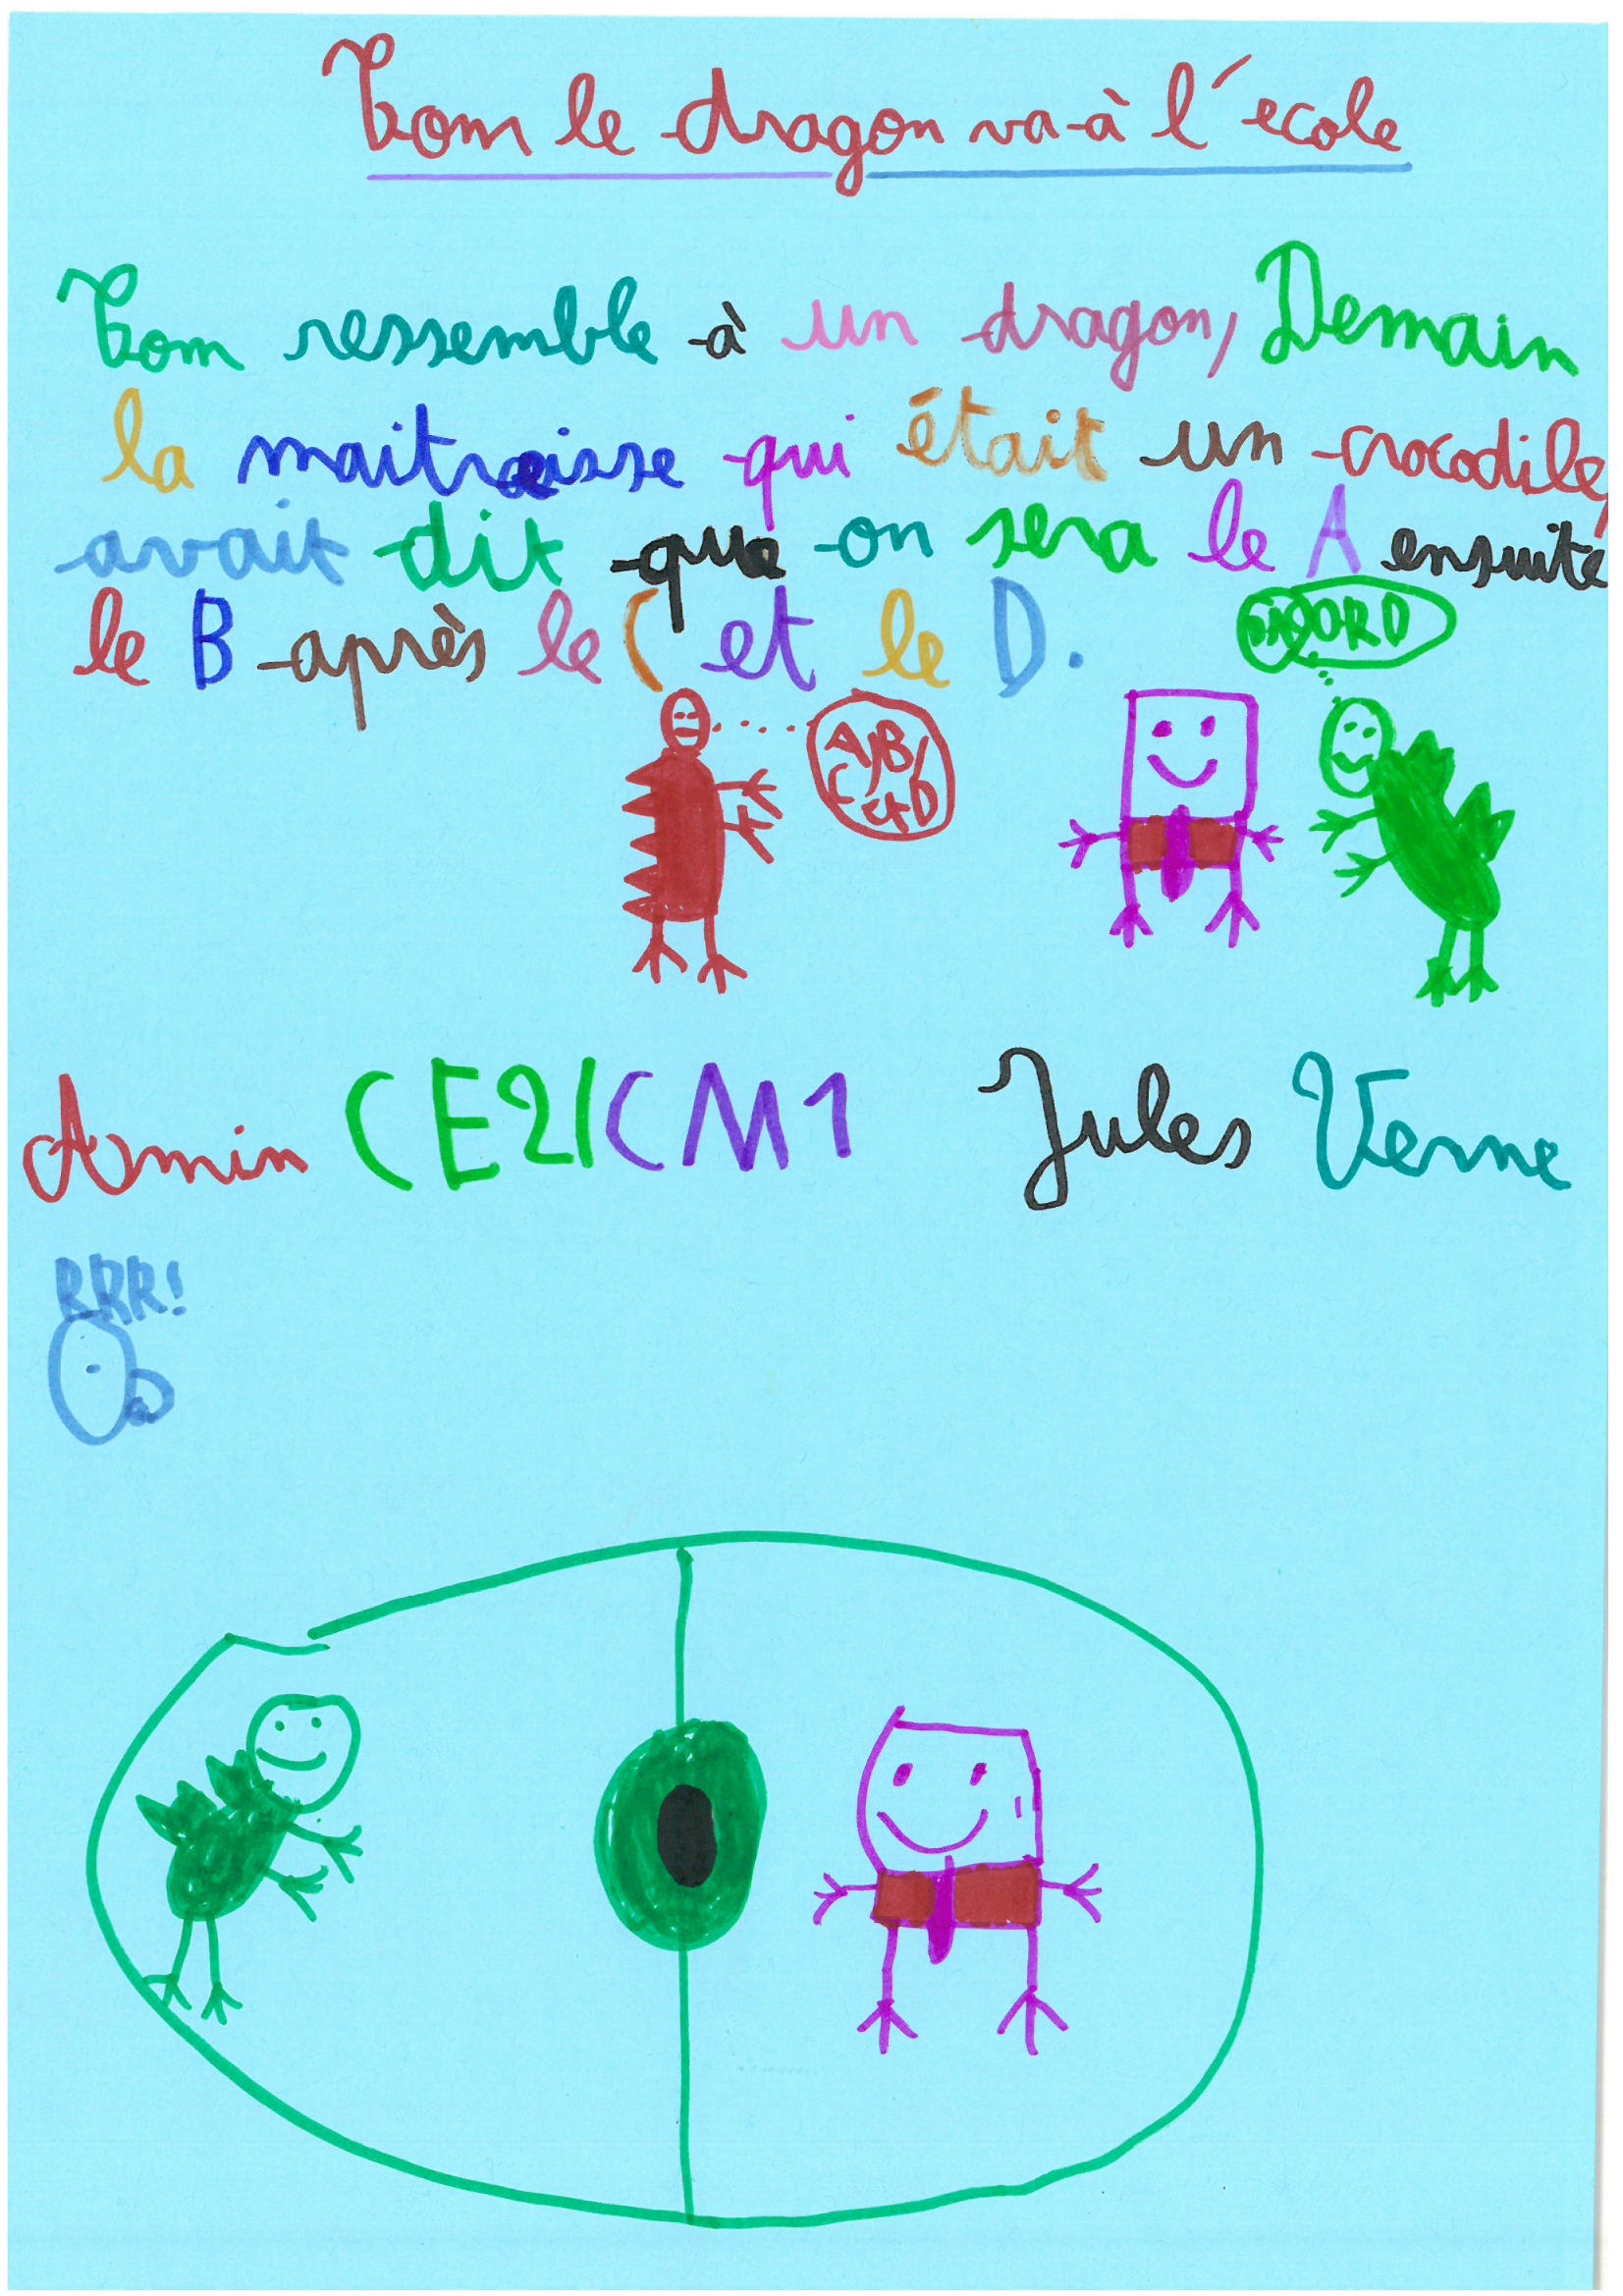 Tom le dragon va à l'ecole
Tom ressemble à un dragon, Demain
la maitraisse qui était un crocodile,
avait dit que on sera le A ensuite
le B après le C et le D.
A,B,
C et D
Amin CE2/CM1 Jules Verne
RRR!